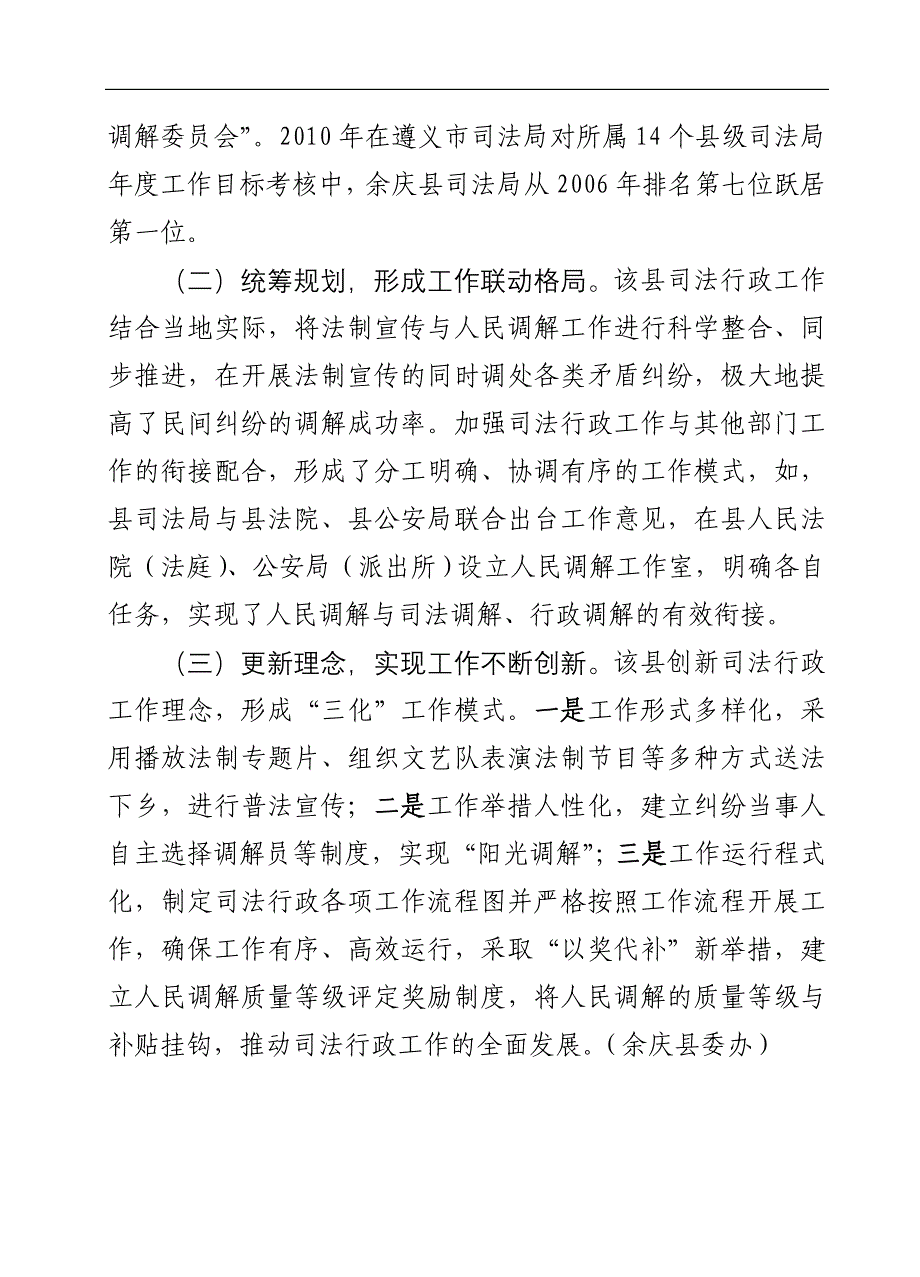 调解委员会”。2010 年在遵义市司法局对所属 14 个县级司法局
年度工作目标考核中，余庆县司法局从 2006 年排名第七位跃居
第一位。
（二）统筹规划，形成工作联动格局。该县司法行政工作
结合当地实际，将法制宣传与人民调解工作进行科学整合、同
步推进，在开展法制宣传的同时调处各类矛盾纠纷，极大地提
高了民间纠纷的调解成功率。加强司法行政工作与其他部门工
作的衔接配合，形成了分工明确、协调有序的工作模式，如，
县司法局与县法院、县公安局联合出台工作意见，在县人民法
院（法庭）、公安局（派出所）设立人民调解工作室，明确各自
任务，实现了人民调解与司法调解、行政调解的有效衔接。
（三）更新理念，实现工作不断创新。该县创新司法行政
工作理念，形成“三化”工作模式。一是工作形式多样化，采
用播放法制专题片、组织文艺队表演法制节目等多种方式送法
下乡，进行普法宣传；二是工作举措人性化，建立纠纷当事人
自主选择调解员等制度，实现“阳光调解”；三是工作运行程式
化，制定司法行政各项工作流程图并严格按照工作流程开展工
作，确保工作有序、高效运行，采取“以奖代补”新举措，建
立人民调解质量等级评定奖励制度，将人民调解的质量等级与
补贴挂钩，推动司法行政工作的全面发展。（余庆县委办）